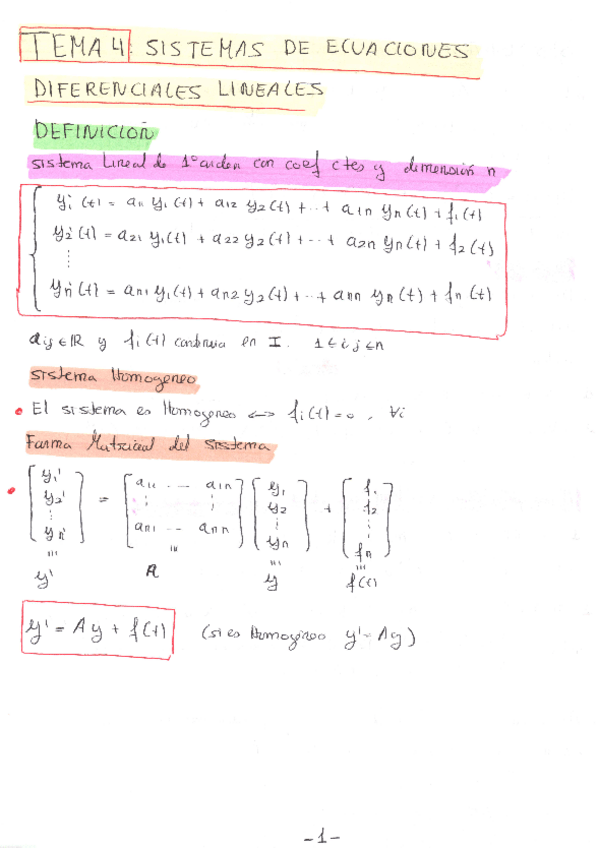 TEMA 4 SISTEMAS DE ECUACIONES
DIFERENCIALES LINEALES
DEFINICION
sistema Lineal de 1º orden con coef ctes y dimensión n
y₁'(t) = a₁₁ y₁(t) + a₁₂ y₂(t) + ... + a₁n yn(t) + f₁(t)
y₂'(t) = a₂₁ y₁(t) + a₂₂ y₂(t) + ... + a₂n yn(t) + f₂(t)
⋮
yn'(t) = an₁ y₁(t) + an₂ y₂(t) + ... + ann yn(t) + fn(t)
aij ∈ ℝ y fi(t) continua en I. 1 ≤ i, j ≤ n
sistema Homogeneo
• El sistema es Homogeneo <-> fi(t) = 0, ∀i
Forma Matricial del sistema
• [y₁' y₂' ⋮ yn'] = [a₁₁ ... a₁n ⋮ ⋮ an₁ ... ann] [y₁ y₂ ⋮ yn] + [f₁ f₂ ⋮ fn]
≡ ≡ ≡ ≡
y' A y f(t)
y' = Ay + f(t) (si es Homogéneo y' = Ay)
-1-